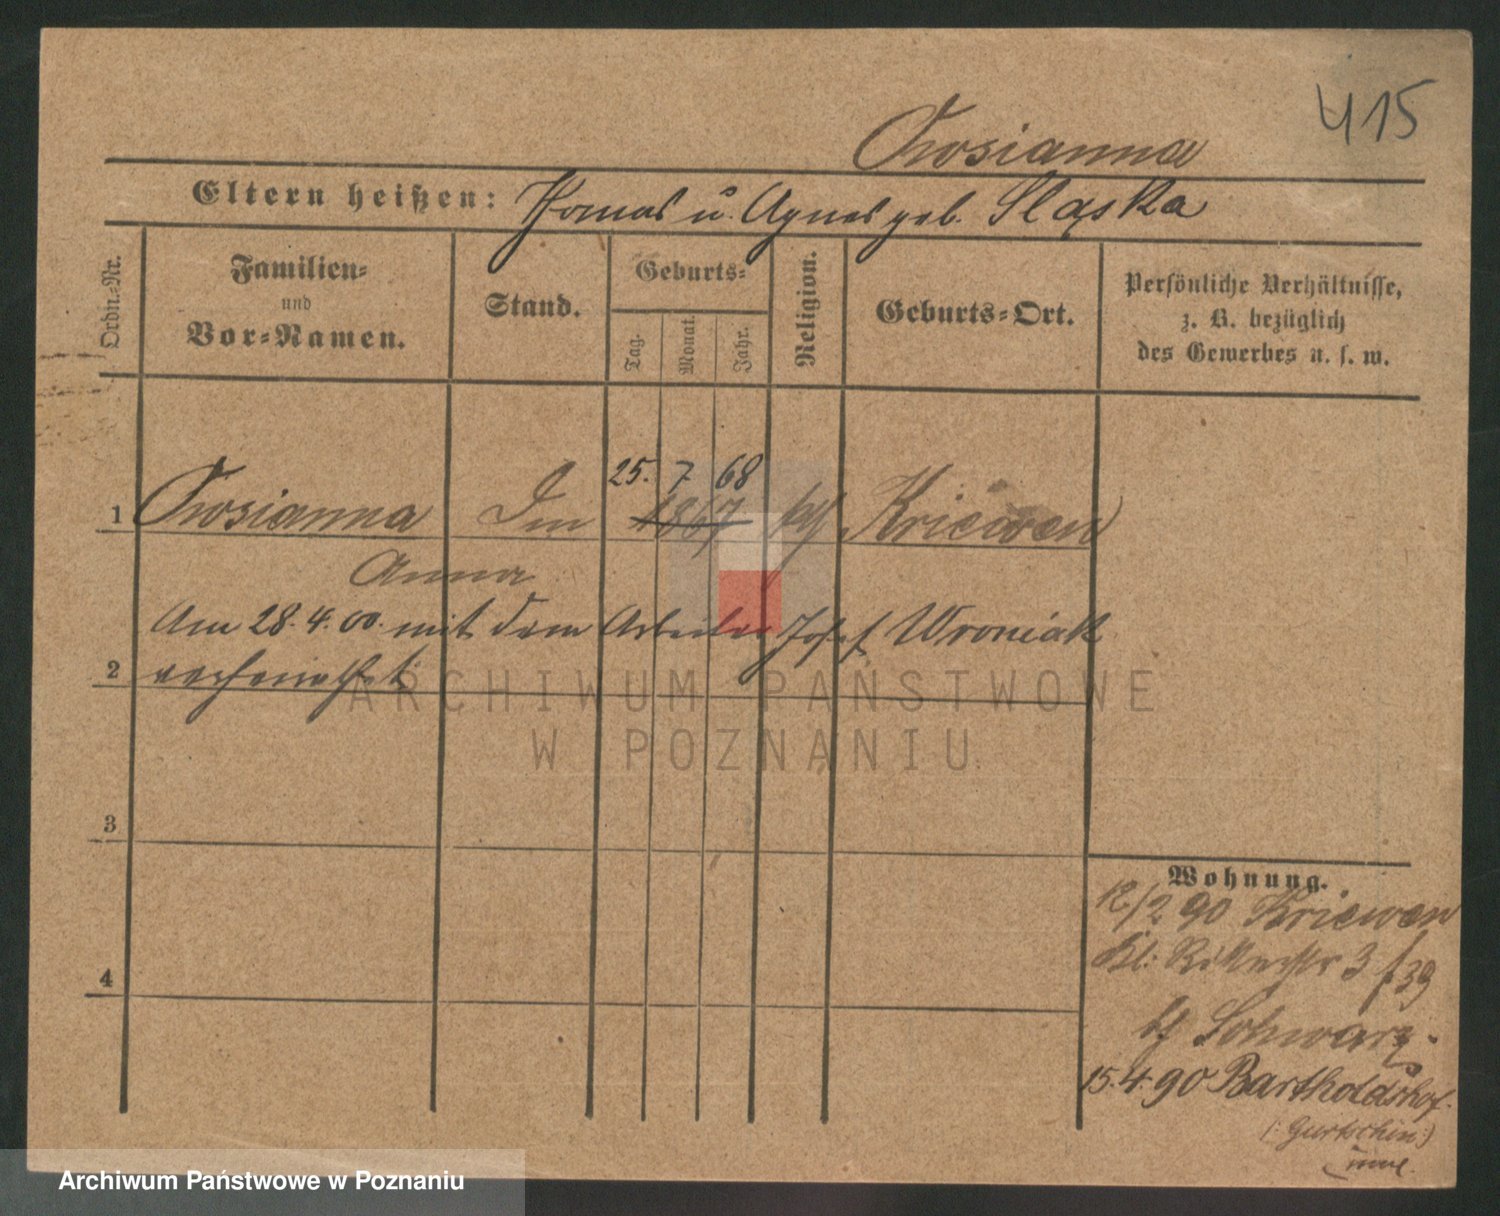 415
Eltern heißen: Thomas u. Agnes geb. Śląska
Ordn.-Nr.
Familien-
und
Vor-Namen.
Stand.
Geburts-
Tag.
Monat.
Jahr.
Religion.
Geburts-Ort.
Persönliche Verhältnisse,
z. B. bezüglich
des Gewerbes u. s. w.
25. 7 68
1 1867 Kriewen
Anna
Am 28.4.00. mit dem Arbeiter Josef Wroniak
2 verheirathet
3
4
Wohnung.
12/2 90 Kriewen
3 39
Schwarz
15.4.90 Bartholdshof
(: Gurtschin :)
ARCHIWUM PAŃSTWOWE
W POZNANIU
Archiwum Państwowe w Poznaniu